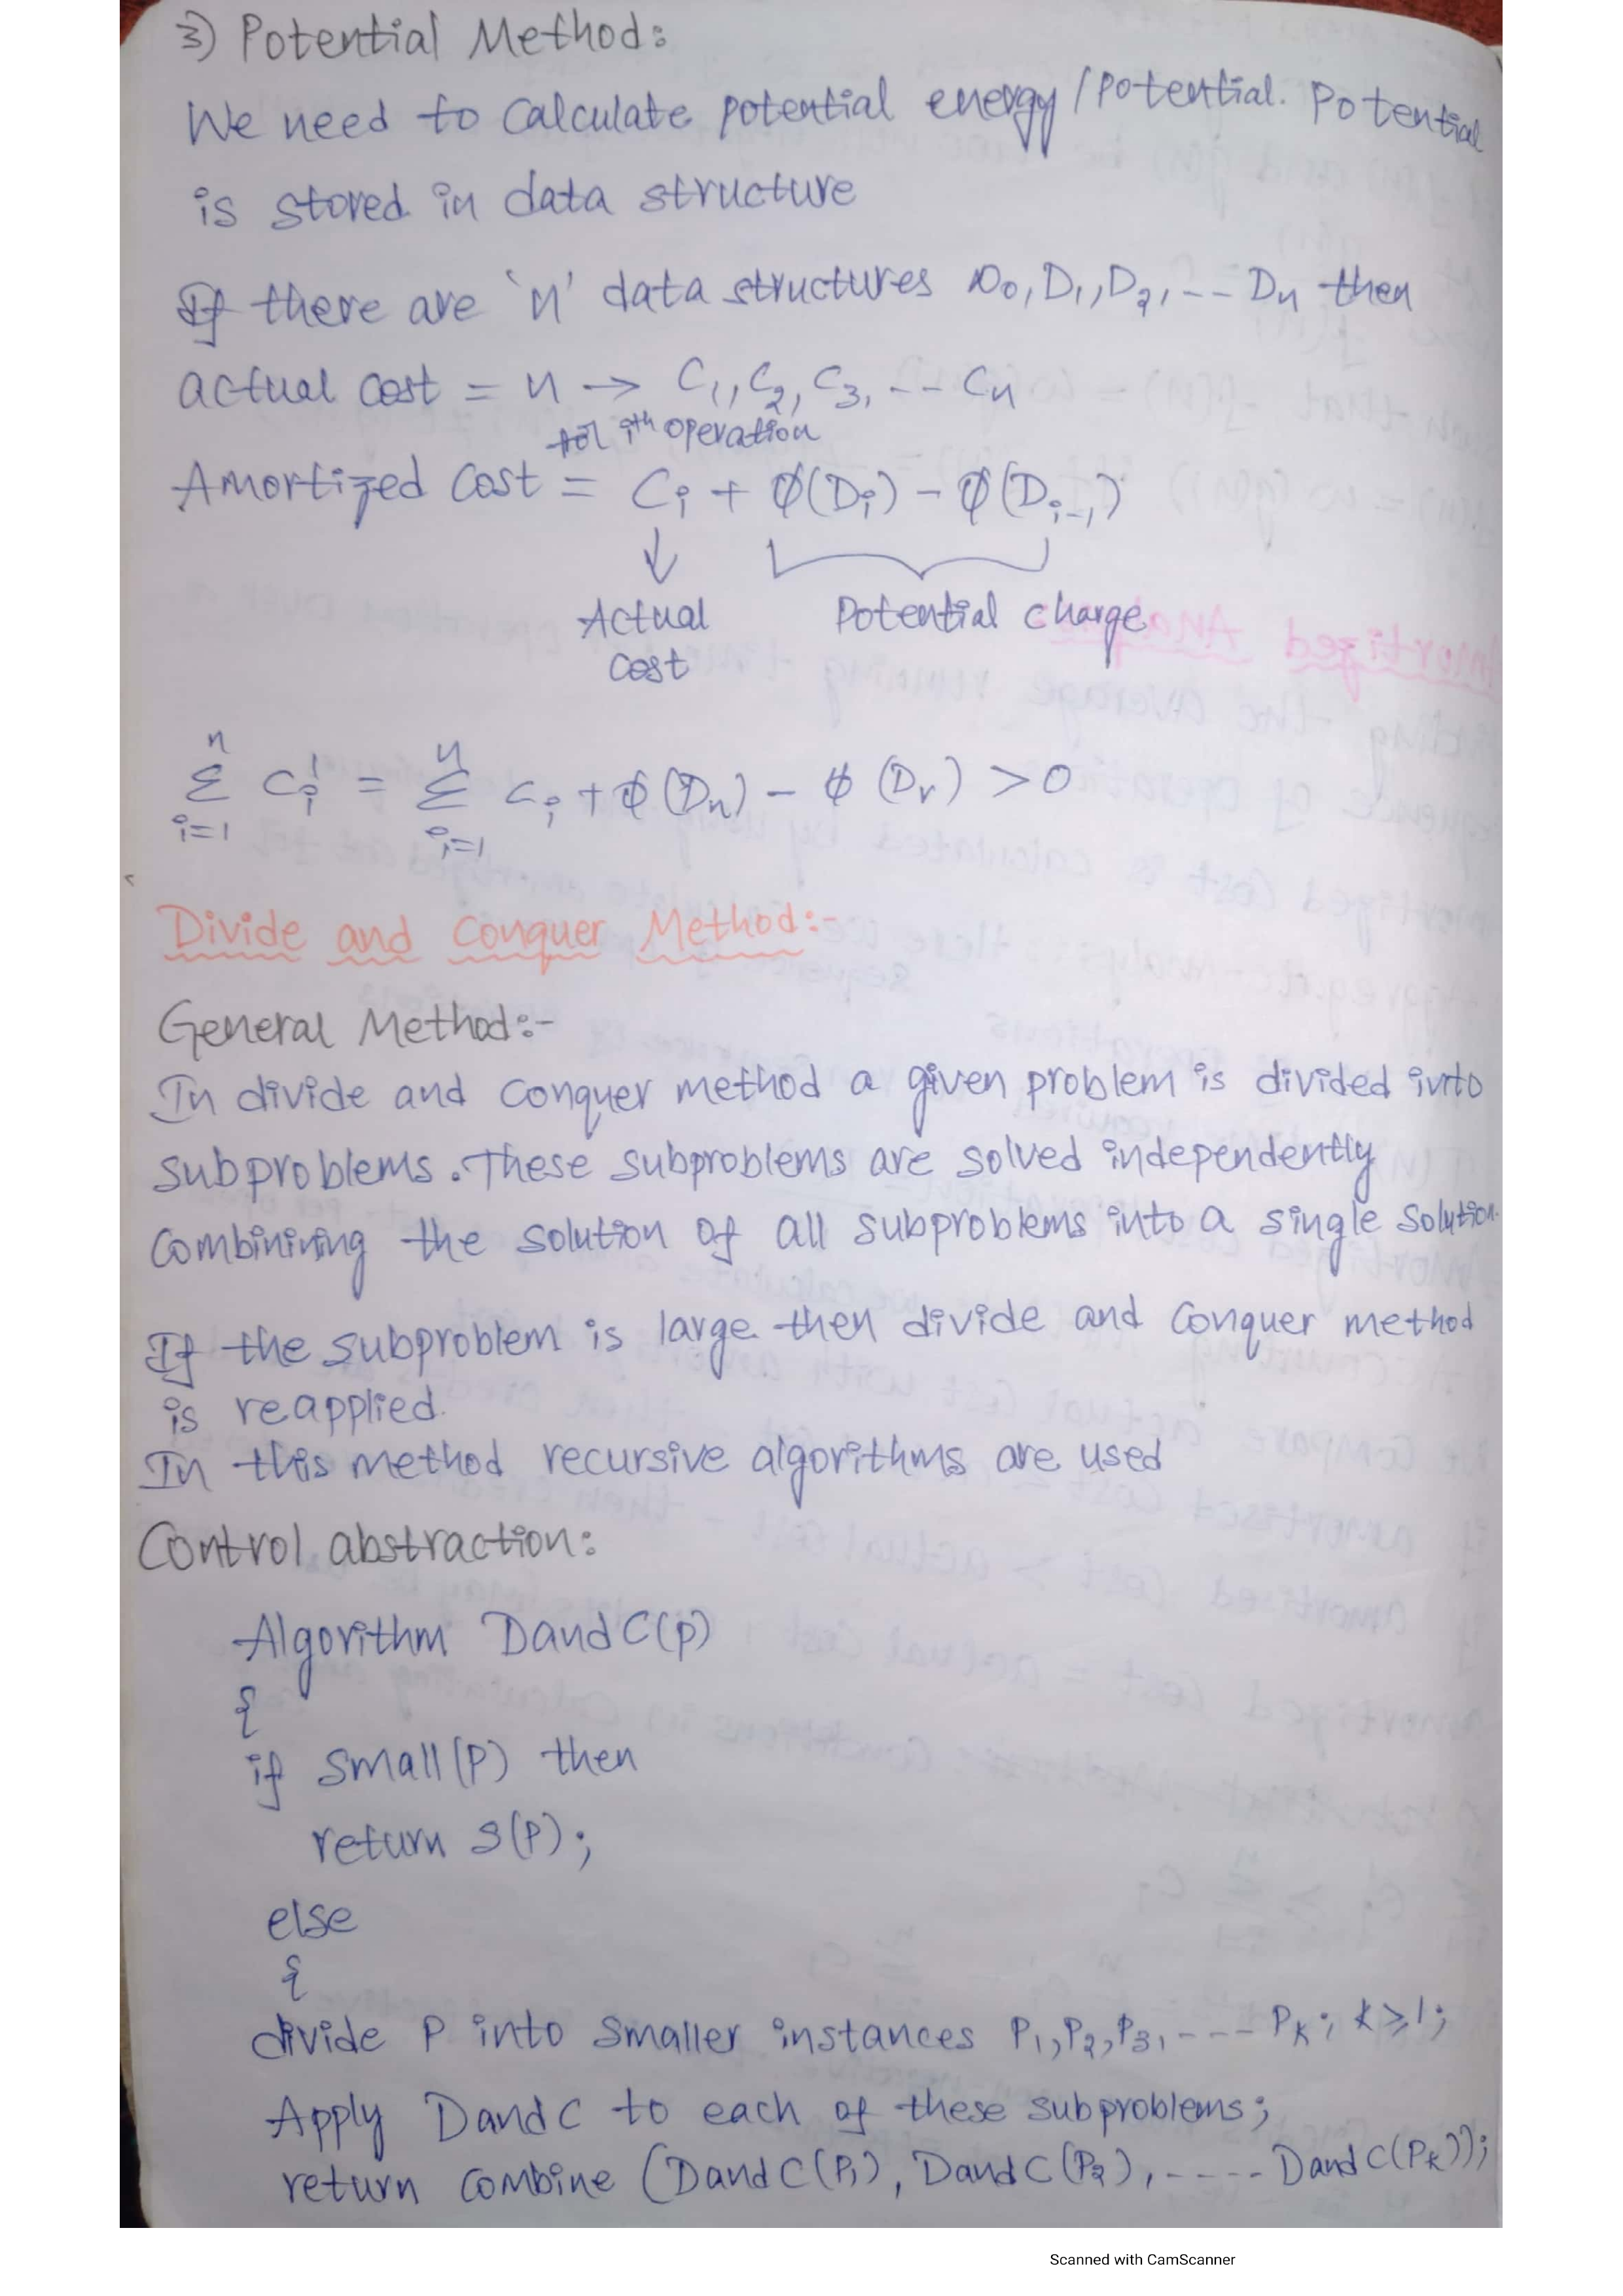 3) Potential Method:
We need to calculate potential energy/potential. Potential
is stored in data structure
If there are 'n' data structures D0, D1, D2, --- Dn then
actual cost = n → C1, C2, C3, --- Cn
for ith operation
Amortized Cost = Ci + ϕ(Di) - ϕ(Di-1)
↓
Actual Potential charge
cost
n n
Σ Ci' = Σ Ci + ϕ(Dn) - ϕ(Dr) > 0
i=1 i=1
Divide and Conquer Method:-
General Method:-
In divide and conquer method a given problem is divided into
subproblems. These subproblems are solved independently
combinining the solution of all subproblems into a single solution.
If the subproblem is large then divide and conquer method
is reapplied.
In this method recursive algorithms are used
Control abstraction:
Algorithm DandC(p)
{
if small(P) then
return S(P);
else
{
divide P into smaller instances P1, P2, P3, ---- Pk; k≥1;
Apply DandC to each of these subproblems;
return combine (DandC(P1), DandC(P2), ----- DandC(Pk));
Scanned with CamScanner